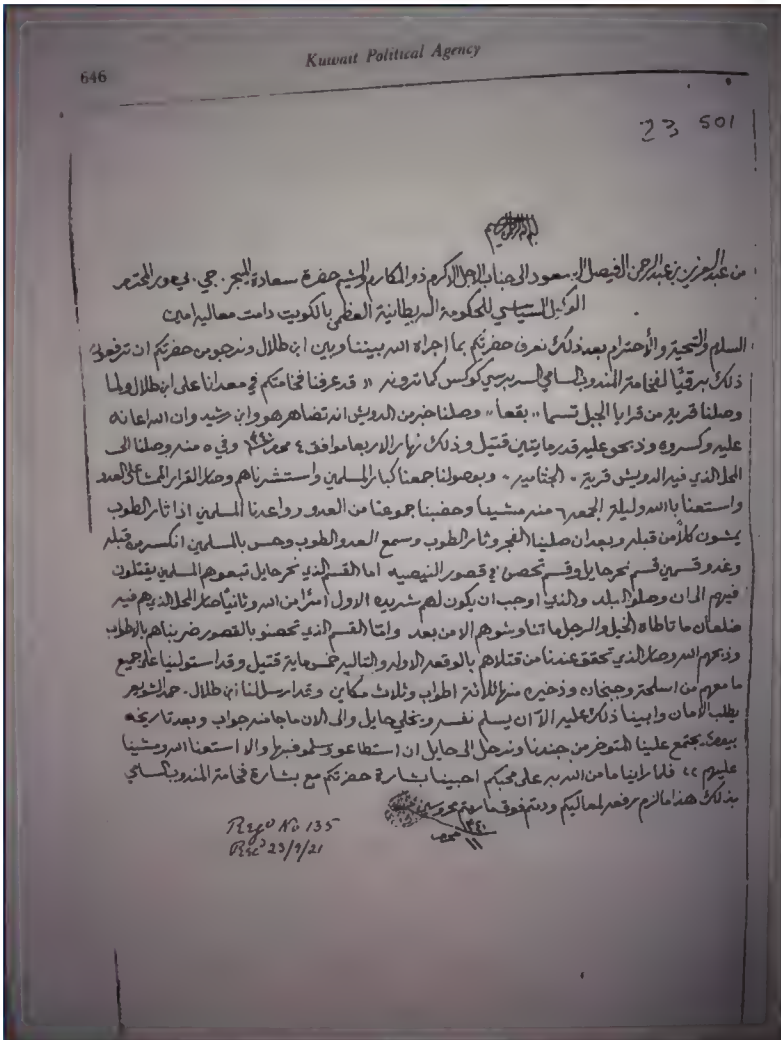 Kuwait Political Agency
646
23 501
بسم الله الرحمن الرحيم
من عبد العزيز بن عبد الرحمن الفيصل السعود الى جناب الاجل الاكرم ذو المكارم والشيم حضرة سعادة الميجر . جي . سي مور المحترم
الوكيل السياسي للحكومة البريطانية العظمى بالكويت دامت معاليه امين
السلام والتحية والأحترام بعد ذلك نعرف حضرتكم بما اجراه الله بيننا وبين ابن طلال ونرجو من حضرتكم ان ترفعوا
ذلك برقيًا لفخامة المندوب السامي السر برسي كوكس كما ترونه " قد عرفنا فخامتكم في معدانا على ابن طلال ولما
وصلنا قرية من قرايا الجبل تسما ,, بقعا ,, وصلنا خبر من الدويش انه تضاهر هو وابن رشيد وان الله اعانه
عليه وكسروه وذبحو عليه قدر مايتين قتيل وذلك نهار الاربعا موافق ٤ محرم وفي ٥ منه وصلنا الى
المحل الذي فيه الدويش قرية - الجثامير - وبوصولنا جمعنا كبار المسلمين واستشرناهم وصار القرار الممشا على العدو
واستعنا بالله وليلة الجمعه ٦ منه مشينا وحضبنا جموعنا من العدو وواعدنا المسلمين اذا ثار الطوب
يمشون كلاً من قبله وبعد ان صلينا الفجر وثار الطوب وسمع العدو الطوب وحس بالمسلمين انكسر من قبله
وغدو قسمين قسم نحر حايل وقسم تحصن في قصور النيصيه اما القسم الذي نحر حايل تبعوهم المسلمين يقتلون
فيهم الى ان وصلو البلد والذي اوجب ان يكون لهم شريده الاول امرًا من الله وثانيًا صار المحل الذي هم فيه
ضلعان ما تاطاه الخيل والرجل ما تناوشوهم الا من بعد واما القسم الذي تحصنو بالقصور ضربناهم بالاطواب
وذبحهم الله وصار الذي تحقق عندنا من قتلاهم بالوقعه الاوله والتاليه خمس ماية قتيل وقد استولينا على جميع
ما معهم من اسلحة وجبخانه وذخيره منها ثلاثة اطواب وثلاث مكاين وقد ارسل لنا ابن طلال . حمد الشويعر
يطلب الامان وابينا ذلك عليه الا ان يسلم نفسه ويخلي حايل والى الان ما جا منه جواب وبعد تاريخه
يجتمع علينا المتوخر من جندنا ونرحل الى حايل ان استطاعو وسلمو فبها والا استعنا الله ومشينا
عليهم ,, فلما راينا ما من الله به على محبكم احبينا بشارة حضرتكم مع بشارة فخامة المندوب السامي
بذلك هذا ما لزم برفعه لمعاليكم ودمتم محروسين
٣٤٠
١١ محرم
Reg^d No 135
Rec^d 23/9/21